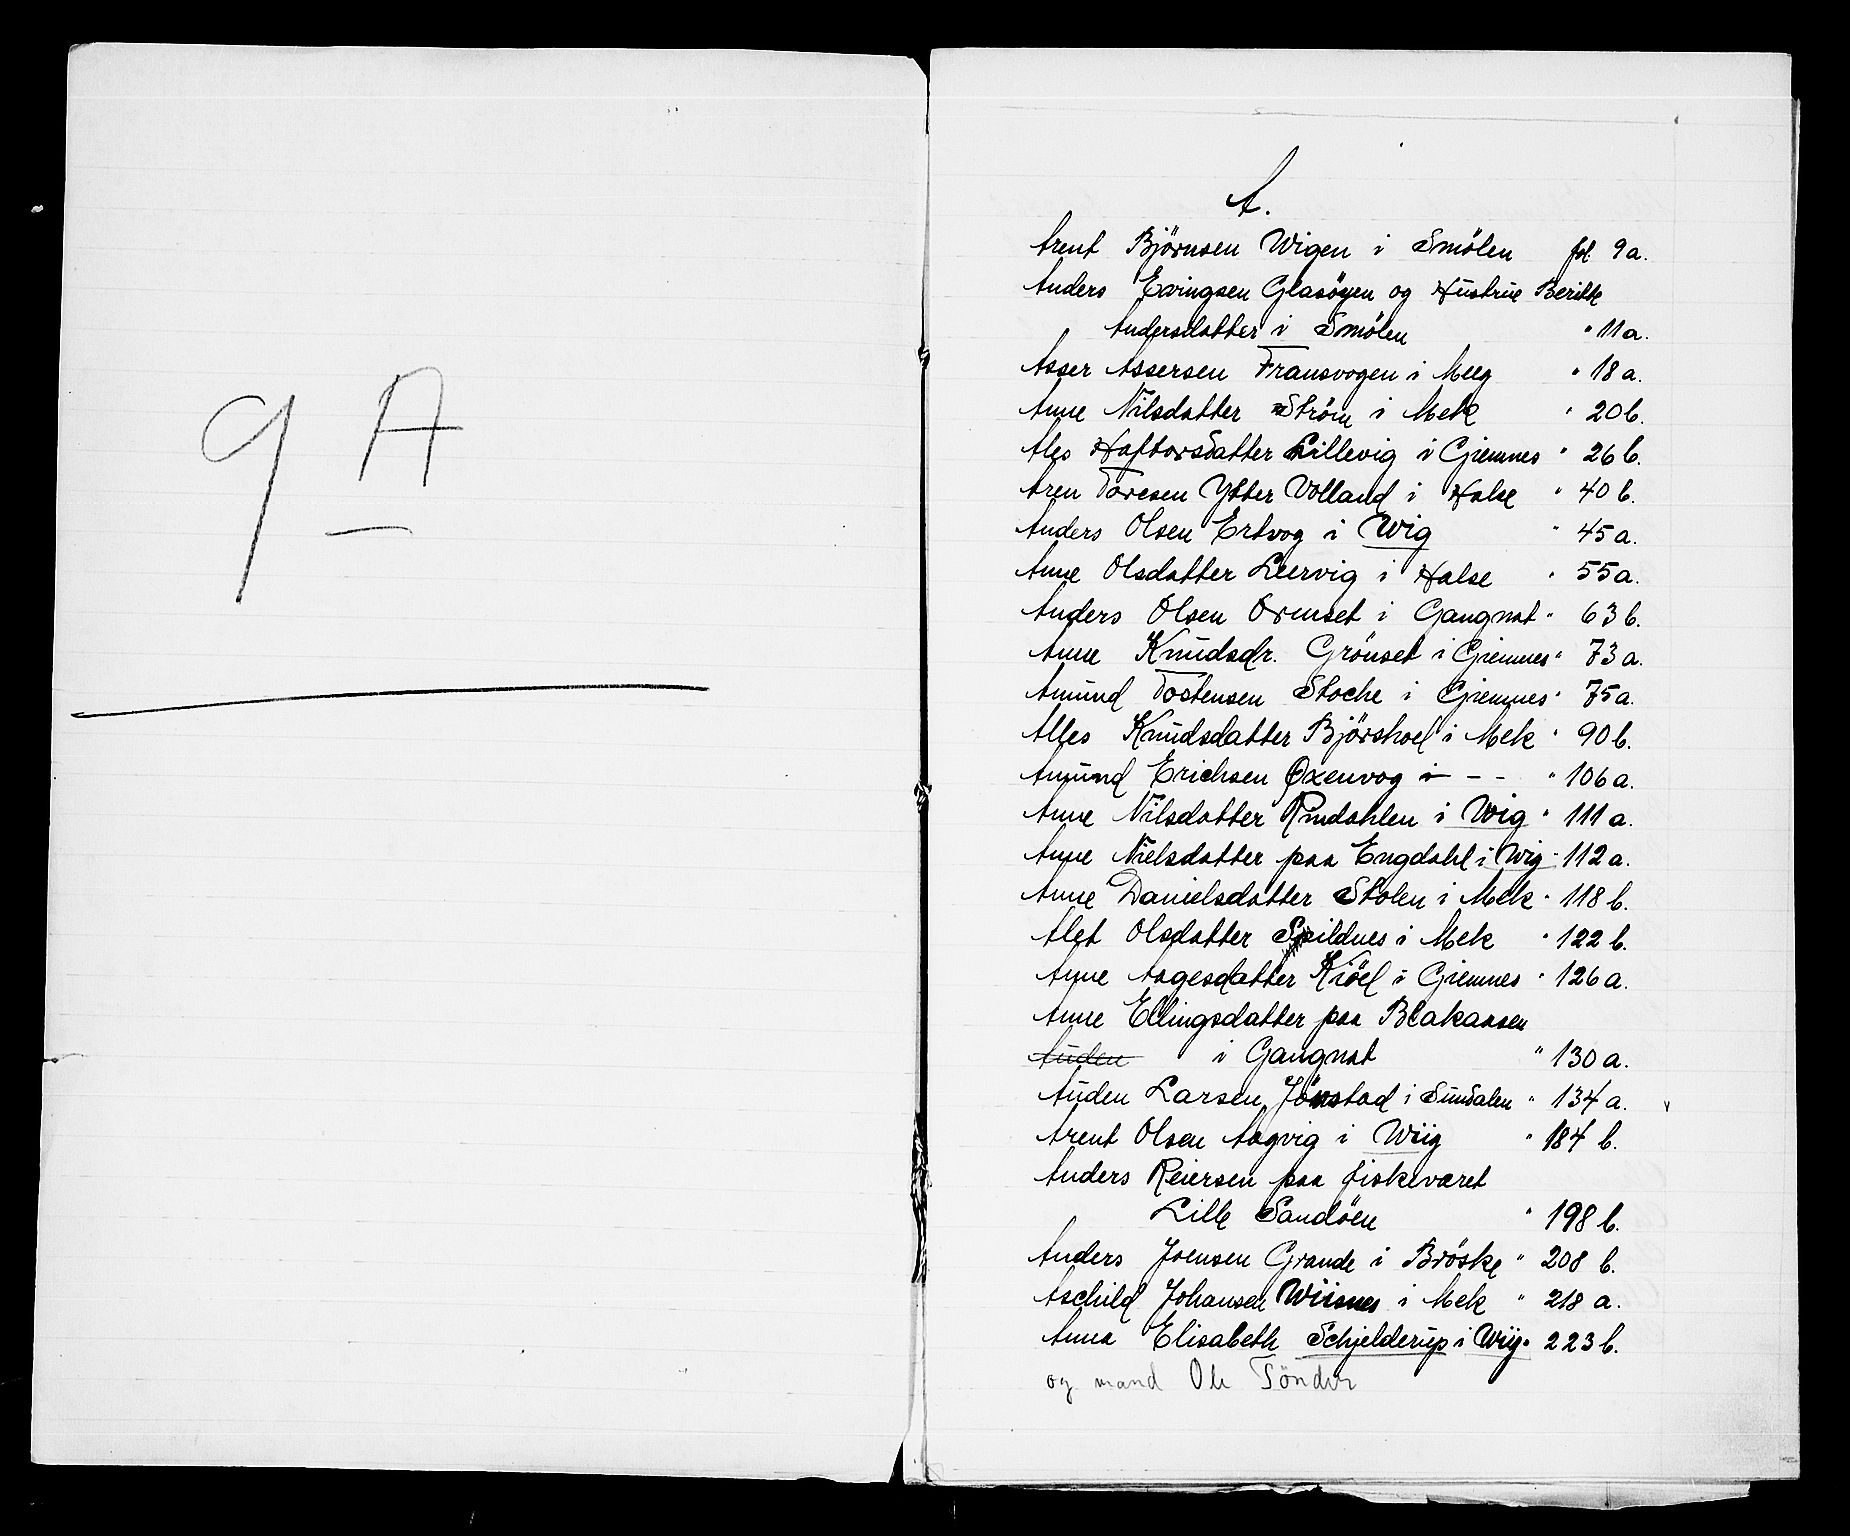 9 A
A.
Arent Björnsen Wigen i Smölen fol. 9 a.
Anders Evingsen Glasöyen og Hustrue Beritte
Andersdatter i Smölen " 11 a.
Asser Assersen Fransvogen i Meeg " 18 a.
Anne Nilsdatter Ström i Mek " 20 b.
Ales Haftorsdatter Lillevig i Giemnes " 26 b.
Aren Toresen Ytter Volland i Halse " 40 b.
Anders Olsen Ertvog i Wig " 45 a.
Anne Olsdatter Leervig i Halse " 55 a.
Anders Olsen Ormset i Gangnat " 63 b.
Anne Knudsdr. Grönset i Giemnes " 73 a.
Amund Tostensen Stoche i Giemnes " 75 a.
Alles Knudsdatter Björshoel i Mek " 90 b.
Amund Erichsen Oxenvog i - - " 106 a.
Anne Nilsdatter Rindahlen i Wig " 111 a.
Anne Nielsdatter paa Engdahl i Wig " 112 a.
Anne Danielsdatter Stolen i Mek " 118 b.
Alet Olsdatter Spildnes i Mek " 122 b.
Anne Aagesdatter Kiöel i Giemnes " 126 a.
Anne Ellingsdatter paa Blakaasen
Auden i Gangnat " 130 a.
Auden Larsen Jönstad i Sundalen " 134 a.
Arent Olsen Aagvig i Wiig " 184 b.
Anders Reiersen paa fiskeværet
Lille Sandöen " 198 b.
Anders Joensen Grande i Bröske " 208 b.
Aschild Johansen Wiisnes i Mek " 218 a.
Anna Elisabeth Schjelderup i Wiig " 223 b.
og mand Ole Tönder